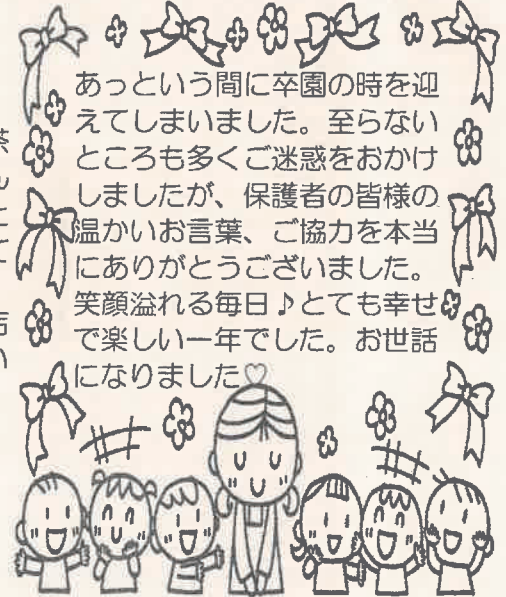 あっという間に卒園の時を迎
えてしまいました。至らない
ところも多くご迷惑をおかけ
しましたが、保護者の皆様の
温かいお言葉、ご協力を本当
にありがとうございました。
笑顔溢れる毎日♪とても幸せ
で楽しい一年でした。お世話
になりました♡